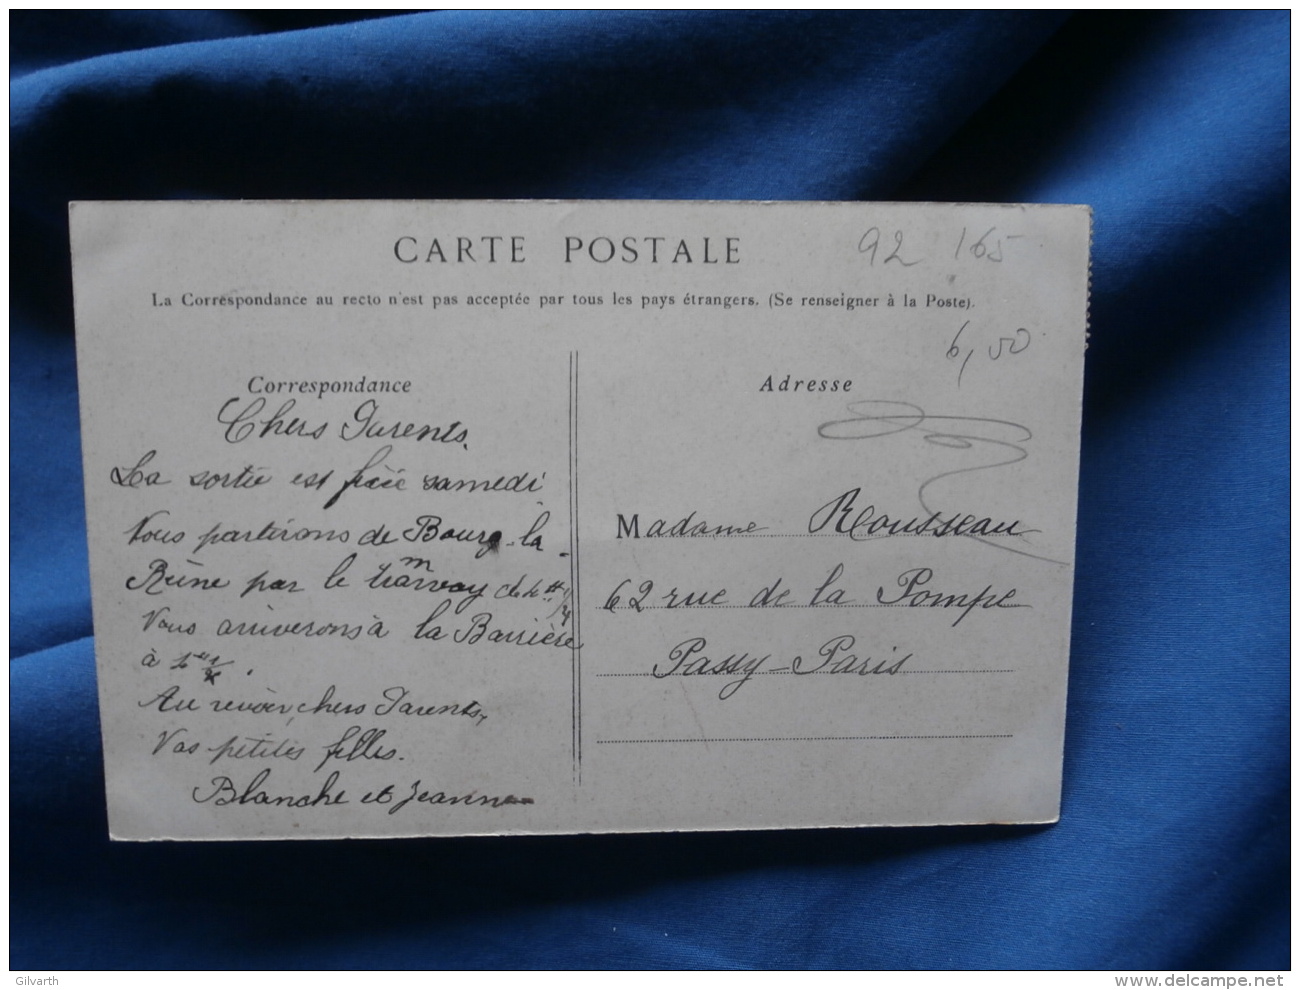 CARTE POSTALE
92 165
La Correspondance au recto n'est pas acceptée par tous les pays étrangers. (Se renseigner à la Poste).
6,50
Correspondance
Chers Parents.
La sortie est fixée samedi
Nous partirons de Bourg-la-
Reine par le tramway de
Nous arriverons à la Barrière
à
Au revoir, chers Parents,
Vos petites filles.
Blanche et Jeanne
Adresse
Madame Rousseau
62 rue de la Pompe
Passy-Paris
Gilvarth
www.delcampe.net